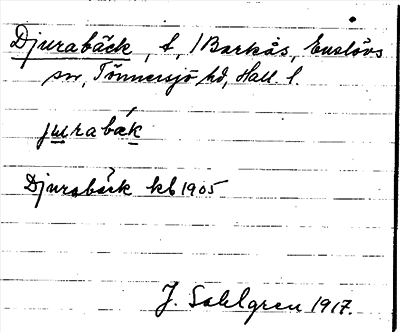 Djurabäck, t, /Barkås, Enslövs
sn, Tönnersjö hd, Hall. l.
jurabäk
Djurabäck kb 1905
J. Sahlgren 1917.